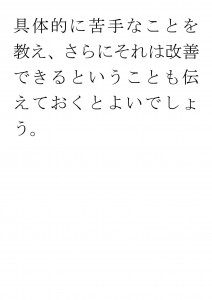 具体的に苦手なことを
教え、さらにそれは改善
できるということも伝
えておくとよいでしょ
う。